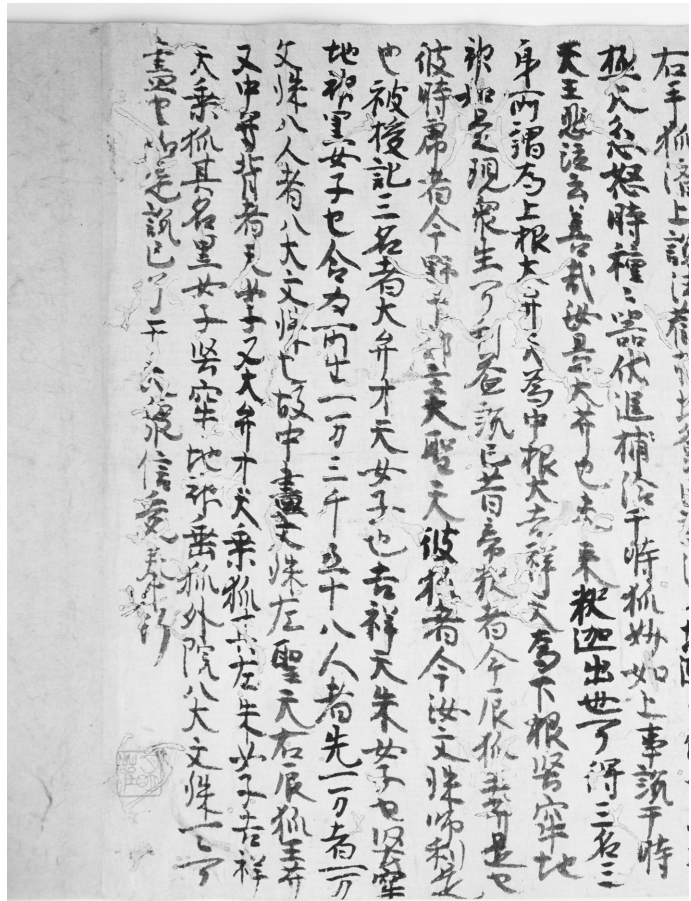 右手狐落上説法
極大忿怒時種々器伏進捕給于時狐如上事説于時
天王悲泣云善哉汝是大井也未来釈迦出世可得三名三
身所謂為上根大弁天為中根大吉祥天為下根堅牢地
神如是現衆生可利益説已昔帝釈者今辰狐王井是也
彼時帝者今野干即言大聖天彼狐者今汝文殊師利是
也被授記三名者大弁才天女子也吉祥天朱女子也堅牢
地神黒女子也合力所生一万三千五十八人者先一万者一万
文殊八人者八大文殊也故中畫文殊左聖天右辰狐王井
又中尊背者天女子又大弁才天乗狐其左朱女子吉祥
天乗狐其名黒女子堅牢地神乗狐外院八大文殊一々可
畫也如是説已了天衆信受奉行